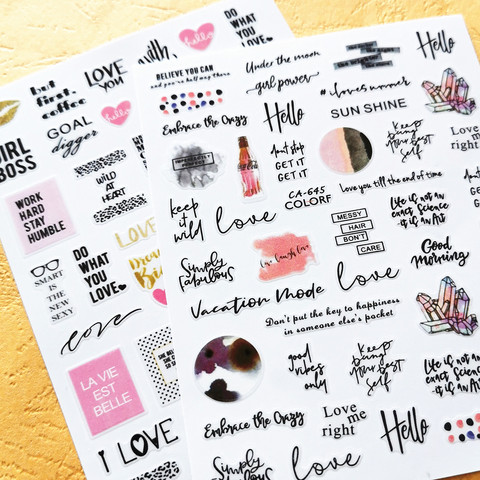 but
first,
coffee
LOVE
YOU
hello
with
hello
DO
WHAT
YOU
LOVE
GIRL
BOSS
GOAL
digger
hello
WORK
HARD
STAY
HUMBLE
WILD
AT
HEART
SMART
IS THE
NEW
SEXY
DO
WHAT
YOU
LOVE
LOVE
Dream
Big
love
LA VIE
EST
BELLE
I LOVE
BELIEVE YOU CAN
and you're half way there
Under the moon
girl power
Hello
Embrace the Crazy
Hello
#loves summer
SUN SHINE
don't stop
GET IT
GET IT
Keep
being
your best
self
Love me
right
keep
it
will
love
CA-645
COLORF
Love you till the end of time
MESSY
HAIR
DON'T
CARE
Life is not an
exact science
it is an Art
Simply
Fabulous
live laugh love
love
Good
Morning
Vacation mode
Don't put the key to happiness
in someone else's pocket
good
vibes
only
Keep
being
your best
self
Life is not an
exact Science
it is an Art
Embrace the Crazy
Love
me
right
Hello
Simply
Fabulous
love